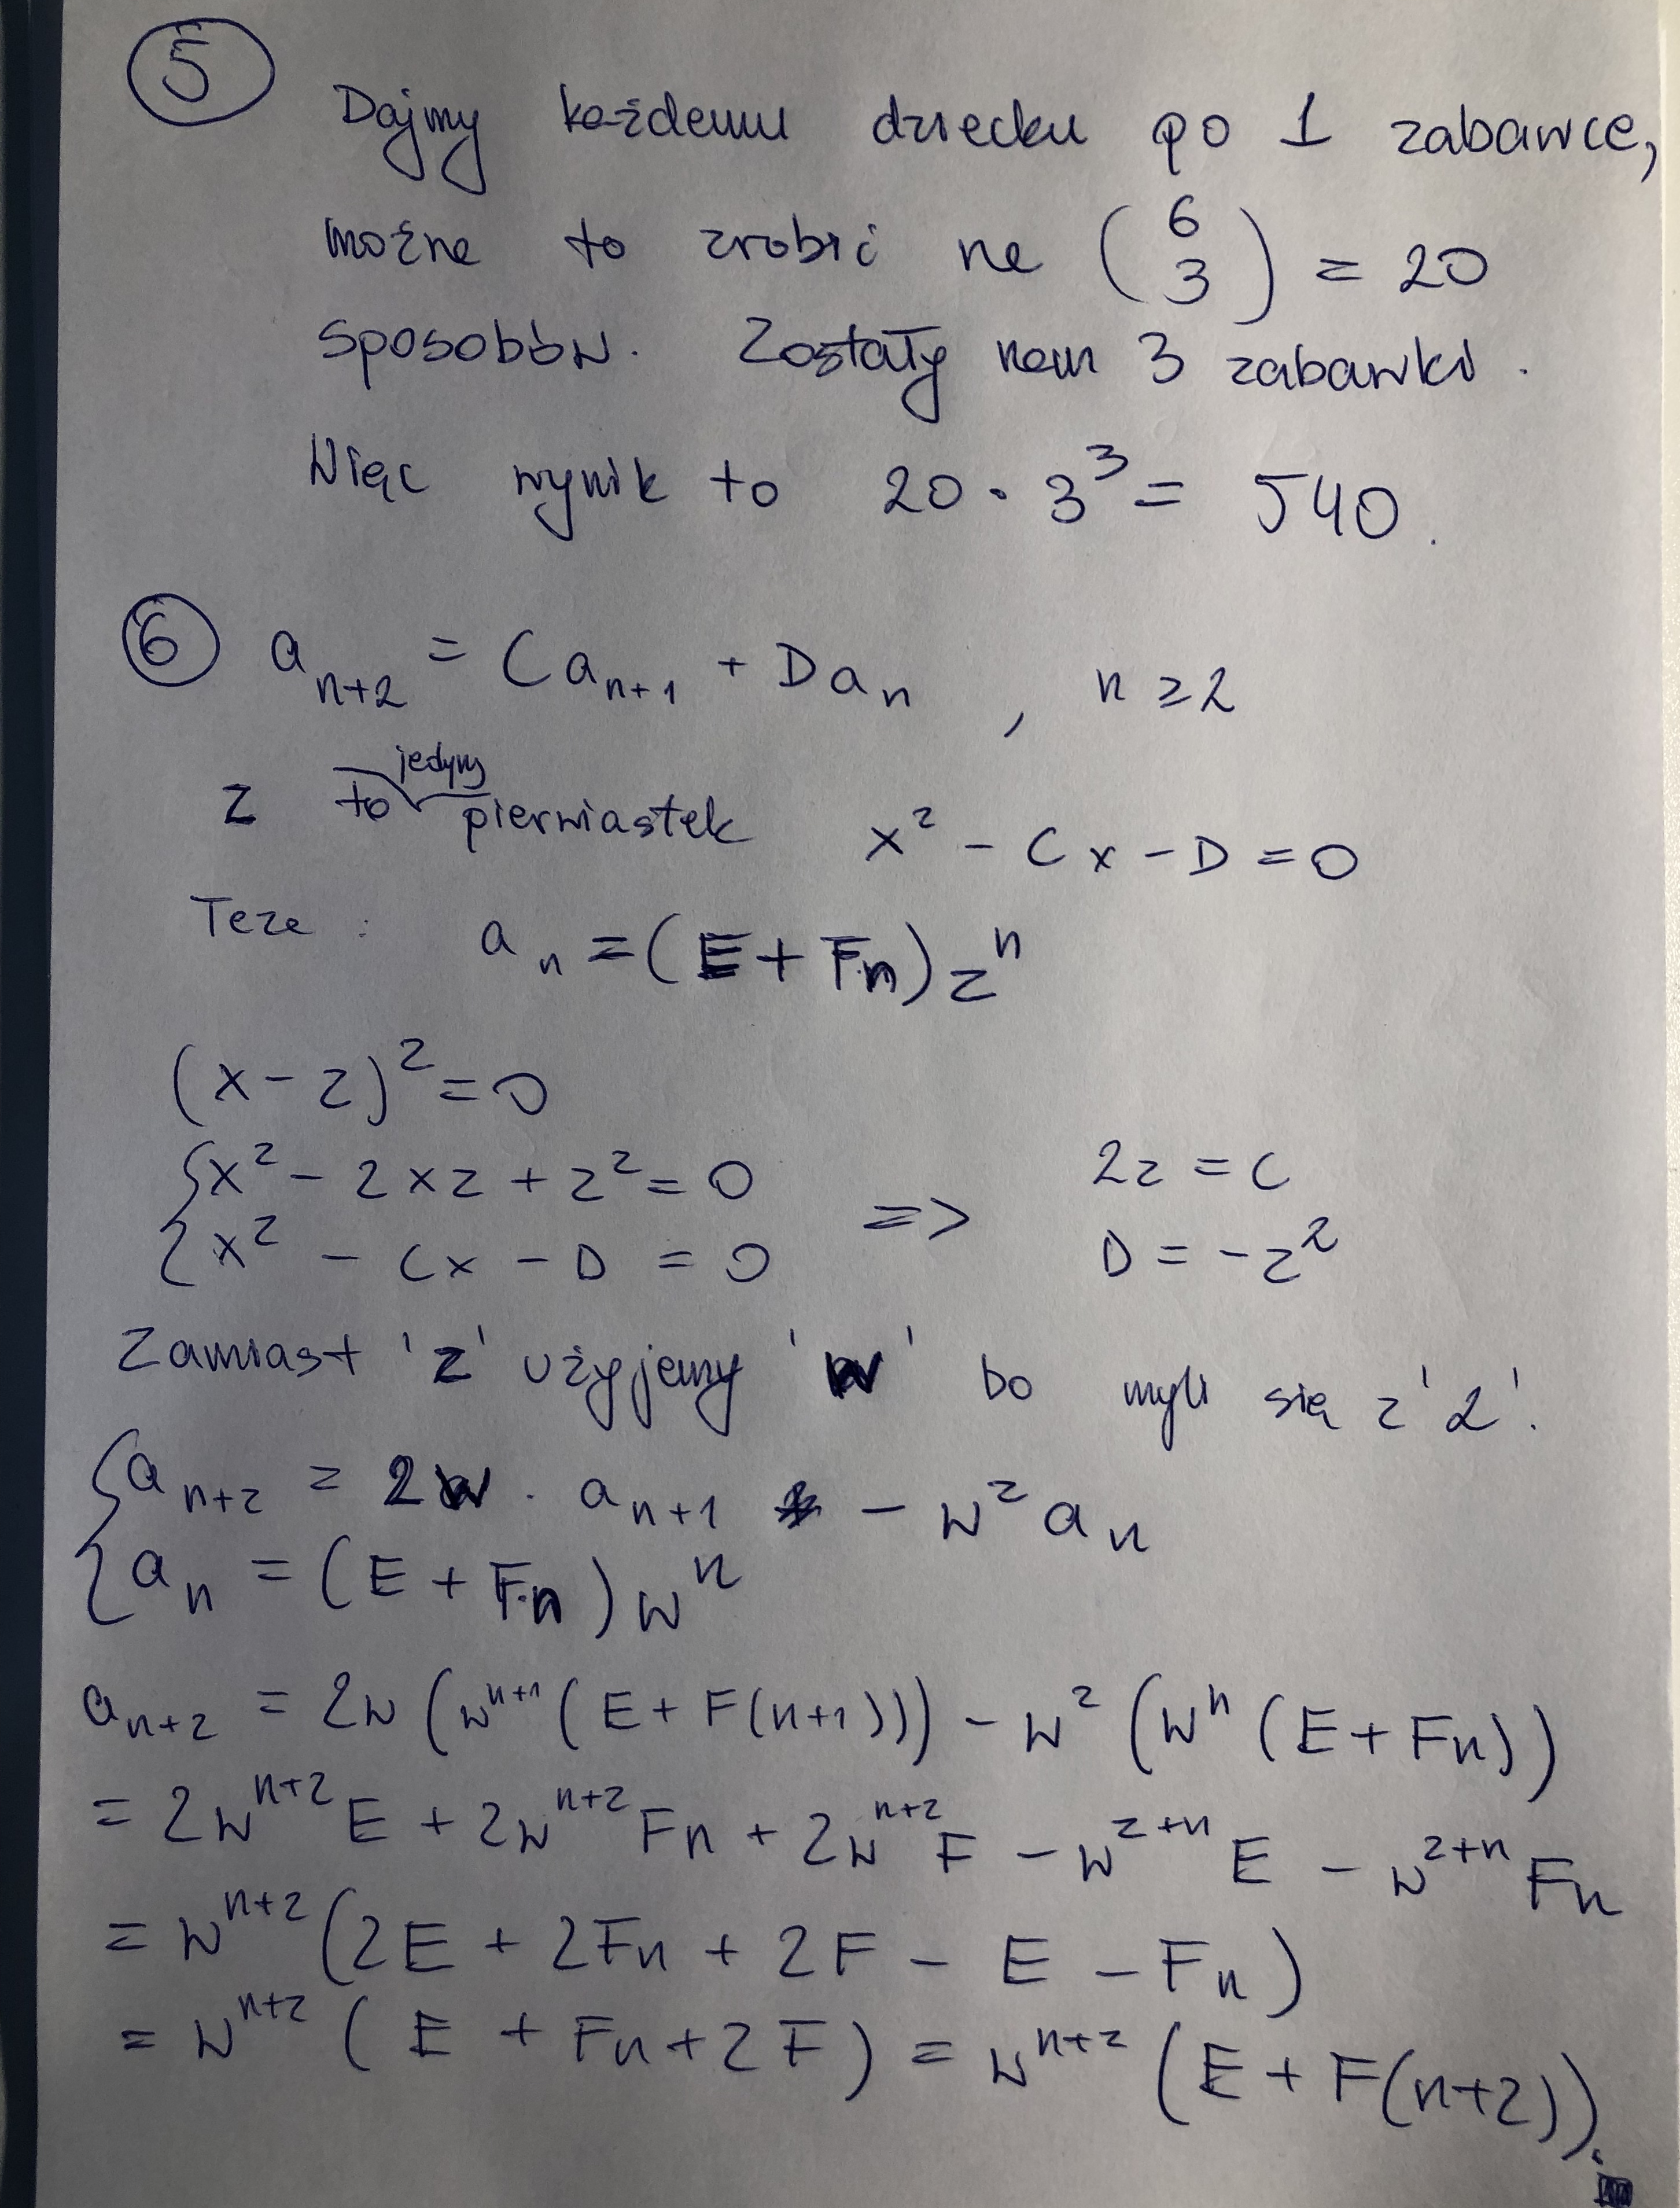 5
Dajmy każdemu dziecku po 1 zabawce,
można to zrobić na (6 3) = 20
sposobów. Zostały nam 3 zabawki.
Więc wynik to 20 · 3³ = 540.
6 aₙ₊₂ = Caₙ₊₁ + Daₙ , n ≥ 2
z to jedyny pierwiastek x² - Cx - D = 0
Teza : aₙ = (E + Fn) zⁿ
(x - z)² = 0
{ x² - 2xz + z² = 0 => 2z = C
{ x² - Cx - D = 0 D = -z²
Zamiast 'z' użyjemy 'w' bo myli się z '2'.
{ aₙ₊₂ = 2w · aₙ₊₁ - w² aₙ
{ aₙ = (E + F·n) wⁿ
aₙ₊₂ = 2w (wⁿ⁺¹ (E + F(n+1))) - w² (wⁿ (E + Fn))
= 2wⁿ⁺² E + 2wⁿ⁺² Fn + 2wⁿ⁺² F - w²⁺ⁿ E - w²⁺ⁿ Fn
= wⁿ⁺² (2E + 2Fn + 2F - E - Fn)
= wⁿ⁺² (E + Fn + 2F) = wⁿ⁺² (E + F(n+2)).